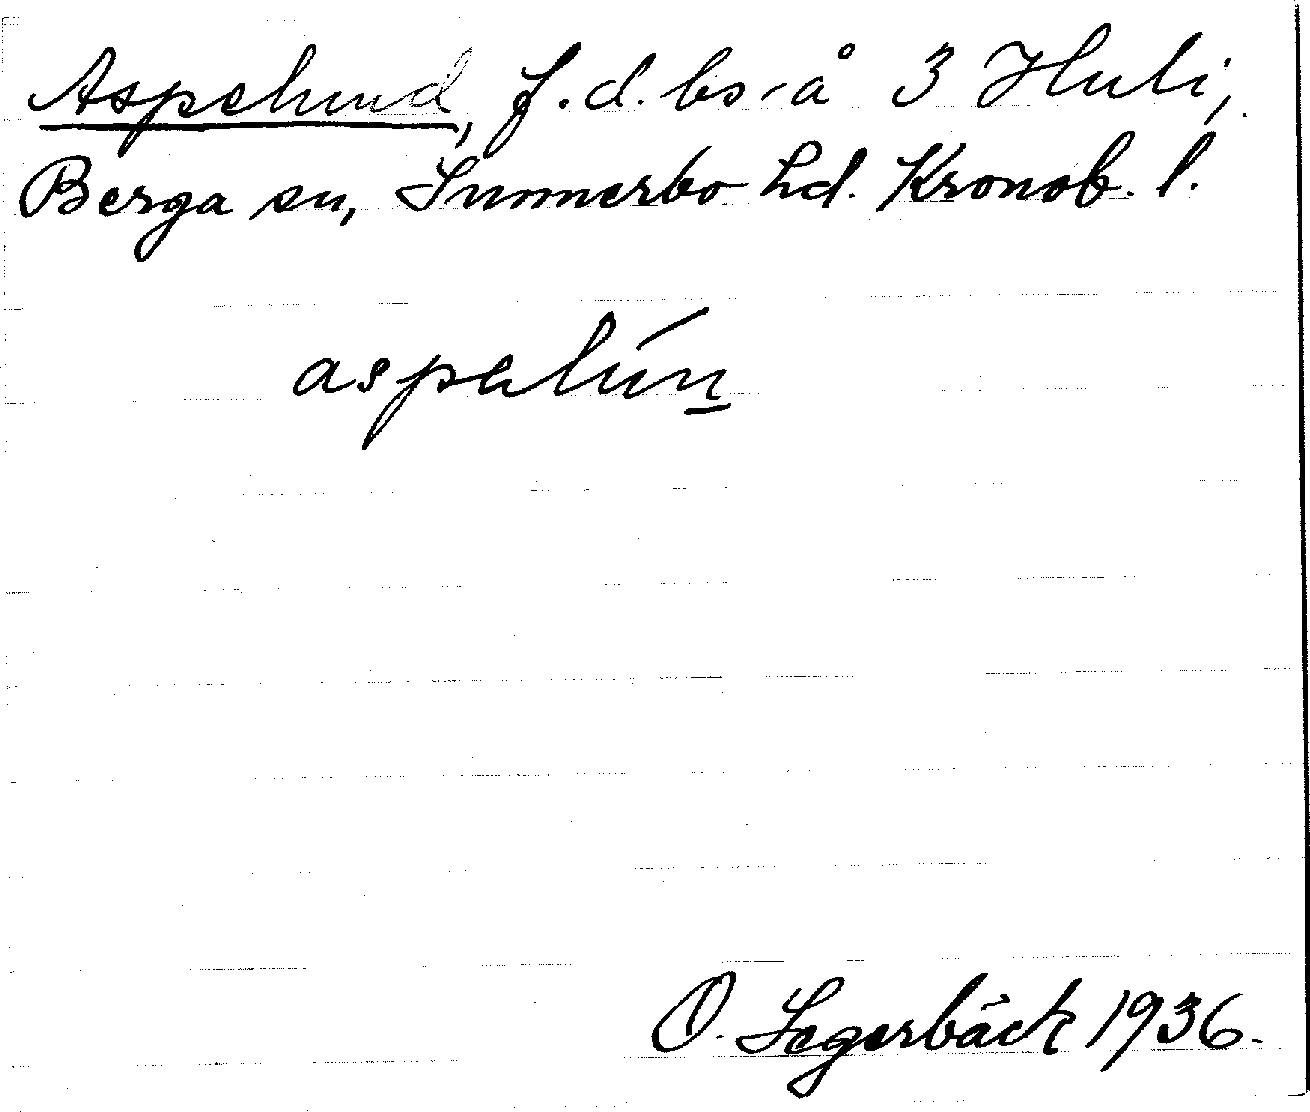 Aspelund, f.d. bs. å 3 Hult,
Berga sn, Sunnerbo hd. Kronob. l.
aspelún
O. Segerbäck 1936.